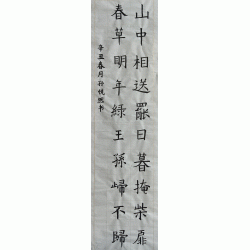 山中相送罷日暮掩柴扉
春草明年綠王孫歸不歸
辛丑春月孙悦熙书